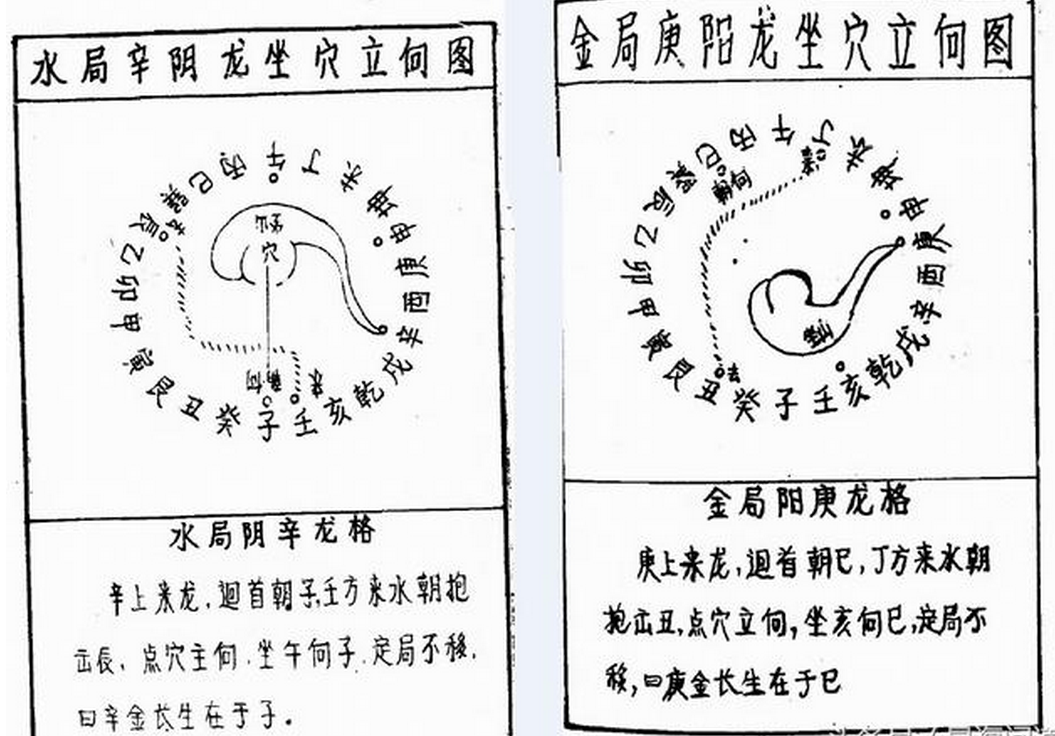 水局辛阴龙坐穴立向图
午
丙
丁
巳
未
巽
坤
辰
申
乙
庚
卯
酉
甲
辛
寅
戌
艮
乾
丑
亥
癸
子
壬
坐山
穴
去
朝向
来
水局阴辛龙格
辛上来龙,迴首朝子,壬方来水朝抱
出辰,点穴主向,坐午向子,定局不移,
曰辛金长生在于子。
金局庚阳龙坐穴立向图
午
丙
丁
巳
未
巽
坤
辰
申
乙
庚
卯
酉
甲
辛
寅
戌
艮
乾
丑
亥
癸
子
壬
朝向
来
去
金局阳庚龙格
庚上来龙,迴首朝巳,丁方来水朝
抱出丑,点穴立向,坐亥向巳,定局不
移,曰庚金长生在于巳